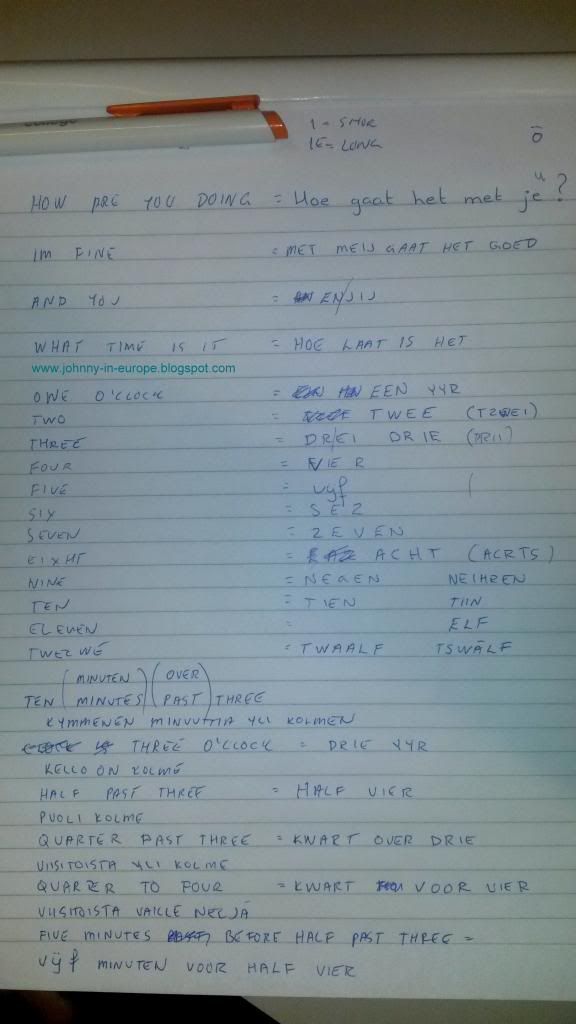 college
1 = SHOR
IE = LONG
ō
HOW ARE YOU DOING = Hoe gaat het met je ?
u
IM FINE = MET MEIJ GAAT HET GOED
AND YOU = EN JIJ
WHAT TIME IS IT = HOE LAAT IS HET
www.johnny-in-europe.blogspot.com
ONE O'CLOCK = EEN YYR
TWO = TWEE (TZWEI)
THREE = DREI DRIE (DRII)
FOUR = VIER
FIVE = vyf (
SIX = SEZ
SEVEN = ZEVEN
EIXHT = ACHT (ACRTS)
NINE = NEGEN NEIHREN
TEN = TIEN TIIN
ELEVEN = ELF
TWELWE = TWAALF TSWÄLF
(MINUTEN) (OVER)
TEN (MINUTES) (PAST) THREE
KYMMENEN MINUUTTIA YLI KOLMEN
THREE O'CLOCK = DRIE YYR
KELLO ON KOLME
HALF PAST THREE = HALF VIER
PUOLI KOLME
QUARTER PAST THREE = KWART OVER DRIE
VIISITOISTA YLI KOLME
QUARTER TO FOUR = KWART VOOR VIER
VIISITOISTA VAILLE NELJÄ
FIVE MINUTES BEFORE HALF PAST THREE =
vÿf MINUTEN VOOR HALF VIER